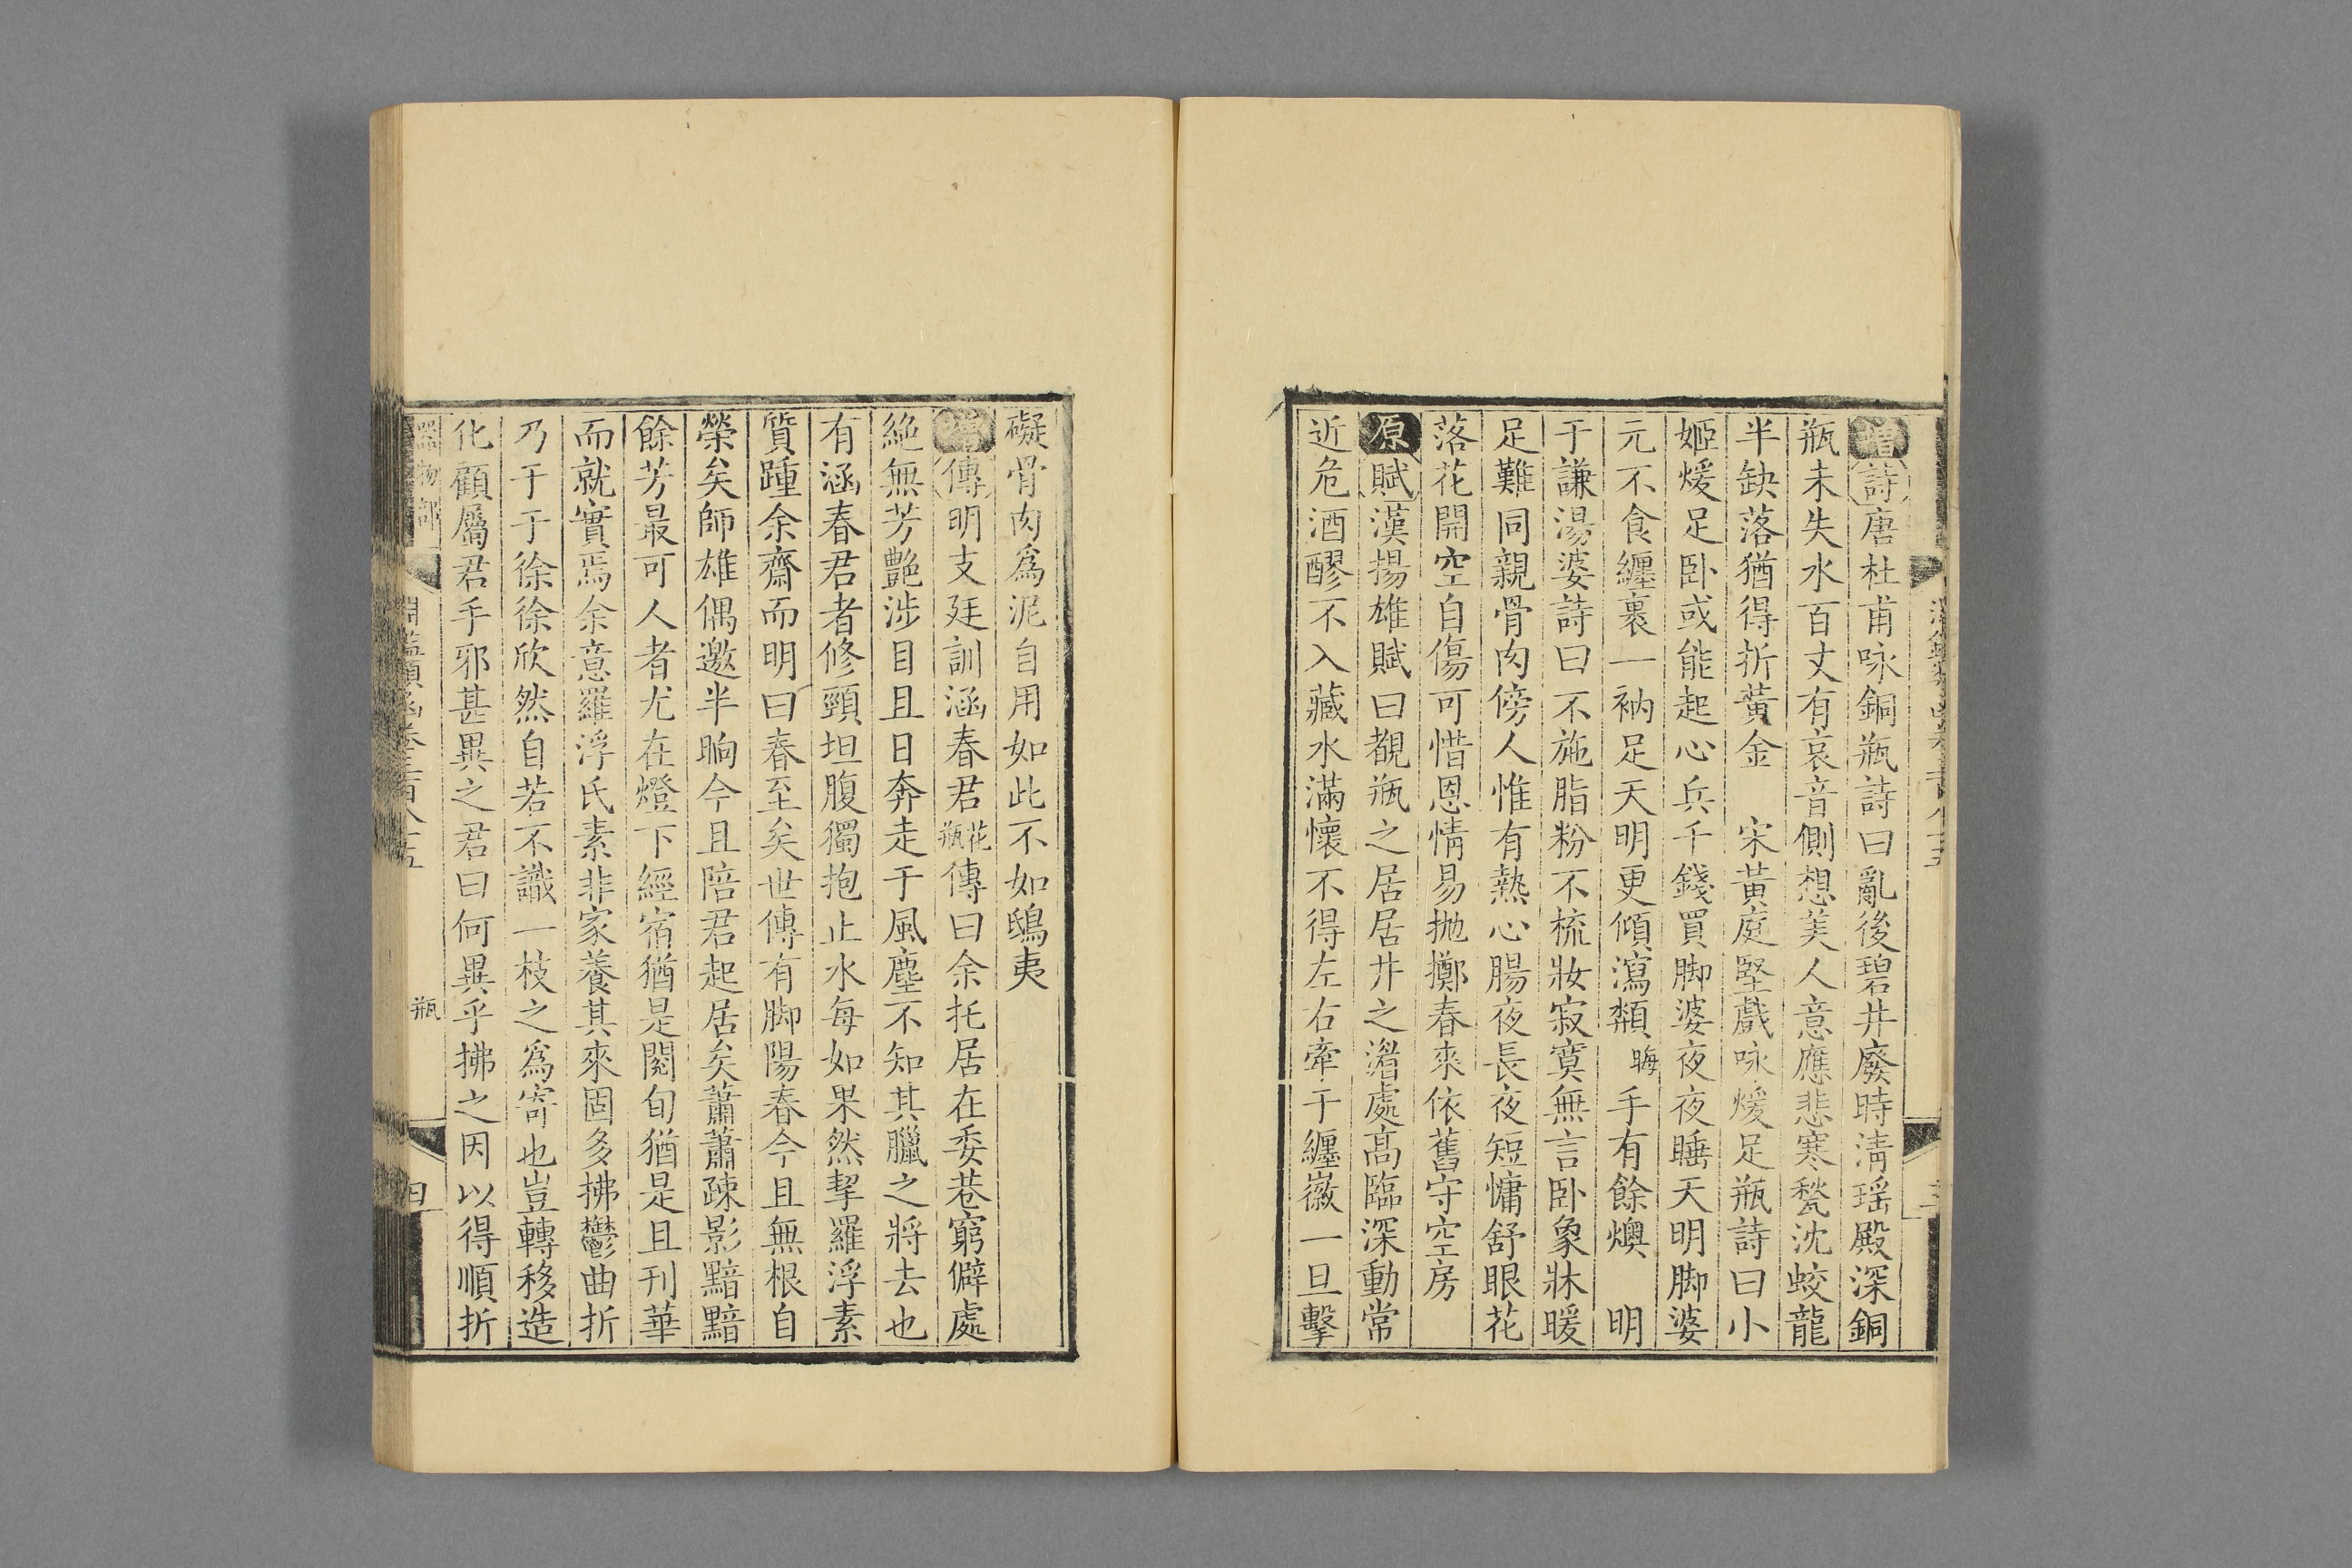 增詩唐杜甫咏銅瓶詩曰亂後碧井廢時清瑶殿深銅
瓶未失水百丈有哀音側想美人意應悲寒甃沈蛟龍
半缺落猶得折黃金　宋黃庭堅戲咏煖足瓶詩曰小
姬煖足卧或能起心兵千錢買脚婆夜夜睡天明脚婆
元不食纏裹一衲足天明更傾瀉頮晦手有餘燠　明
于謙湯婆詩曰不施脂粉不梳妝寂寞無言卧象牀暖
足難同親骨肉傍人惟有熱心腸夜長夜短慵舒眼花
落花開空自傷可惜恩情易拋擲春來依舊守空房
原賦漢揚雄賦曰觀瓶之居居井之湄處高臨深動常
近危酒醪不入藏水滿懷不得左右牽于纏徽一旦擊
礙骨肉爲泥自用如此不如鴟夷
增傳明支廷訓涵春君花瓶傳曰余托居在委巷窮僻處
絶無芳艷涉目且日奔走于風塵不知其臘之將去也
有涵春君者修頸坦腹獨抱止水每如果然挈羅浮素
質踵余齋而明曰春至矣世傳有脚陽春今且無根自
榮矣師雄偶邀半晌今且陪君起居矣蕭蕭疎影黯黯
餘芳最可人者尤在燈下經宿猶是閱旬猶是且刊華
而就實焉余意羅浮氏素非家養其來固多拂鬱曲折
乃于于徐徐欣然自若不識一枝之爲寄也豈轉移造
化顧屬君手邪甚異之君曰何異乎拂之因以得順折
器物部
淵鑑類函卷三百八十五
瓶
四